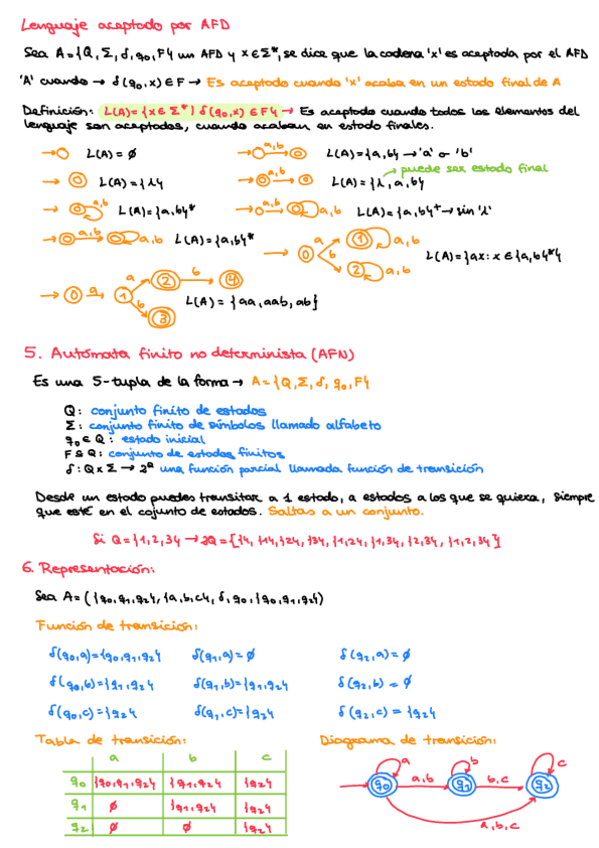 Lenguaje aceptado por AFD
Sea A={Q, Σ, δ, q0, F} un AFD y x∈Σ*, se dice que la cadena 'x' es aceptada por el AFD
'A' cuando → δ(q0,x)∈F → Es aceptado cuando 'x' acaba en un estado final de A
Definición: L(A)={x∈Σ*| δ(q0,x)∈F} → Es aceptado cuando todos los elementos del
lenguaje son aceptados, cuando acaban en estado finales.
L(A)=∅
a,b
L(A)={a,b} → 'a' o 'b'
puede ser estado final
L(A)={λ}
a,b
L(A)={λ,a,b}
a,b
L(A)={a,b}*
a,b
a,b
L(A)={a,b}+ → sin 'λ'
a,b
a,b
L(A)={a,b}*
0
a
1
a,b
b
2
a,b
L(A)={ax: x∈{a,b}*}
0
a
1
a
2
b
4
b
3
L(A)={aa,aab,ab}
5. Autómata finito no determinista (AFN)
Es una 5-tupla de la forma → A={Q,Σ,δ,q0,F}
Q: conjunto finito de estados
Σ: conjunto finito de símbolos llamado alfabeto
q0∈Q: estado inicial
F⊆Q: conjunto de estados finitos
δ: Q×Σ → 2^Q una función parcial llamada función de transición
Desde un estado puedes transitar a 1 estado, a estados a los que se quiera, siempre
que esté en el cojunto de estados. Saltas a un conjunto.
Si Q={1,2,3} → 2Q=[{}, {1},{2}, {3}, {1,2}, {1,3}, {2,3}, {1,2,3}]
6. Representación:
Sea A=({q0,q1,q2}, {a,b,c}, δ, q0, {q0,q1,q2})
Función de transición:
δ(q0,a)={q0,q1,q2} δ(q1,a)=∅ δ(q2,a)=∅
δ(q0,b)={q1,q2} δ(q1,b)={q1,q2} δ(q2,b)=∅
δ(q0,c)={q2} δ(q1,c)={q2} δ(q2,c)={q2}
Tabla de transición: Diagrama de transición:
a b c
q0 {q0,q1,q2} {q1,q2} {q2}
q1 ∅ {q1,q2} {q2}
q2 ∅ ∅ {q2}
a b c
q0 a,b q1 b,c q2
a,b,c